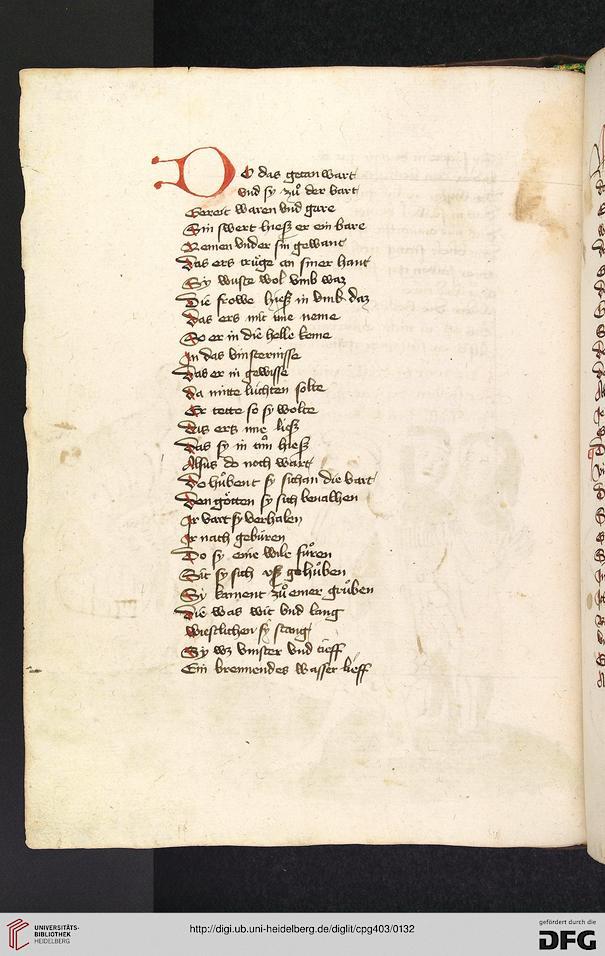 DO das getan wart
vnd sy zuͦ der vart
Bereit waren vnd gare
Sin swert hieß er ein bare
Nemen vnder sin gewant
Das ers truͤge an siner hant
Sy wuste wol vmb waz
Die frowe hieß in vmb daz
Das ers mit ime neme
So er in die helle keme
In das vinsternisse
Das er in gewisse
Da mitte lúchten solte
Er tette so sy wolte
Das ers ime ließ
Das sy in tuͦn hieß
Alsus do noch wart
Do huͦbent sy sich an die vart
Den goͤtten sy sich beualhen
Ir vart sy verhalen
Ir nach geburen
Do sy eine wile fuͦren
Sit sy sich vff gehuͦben
Sy koment zuͦ einer gruͦben
Die was wit vnd lang
wiestlichen sy stang
Sy wz vinster vnd tieff
Ein brennendes wasser lieff
UNIVERSITÄTS-
BIBLIOTHEK
HEIDELBERG
http://digi.ub.uni-heidelberg.de/diglit/cpg403/0132
gefördert durch die
DFG